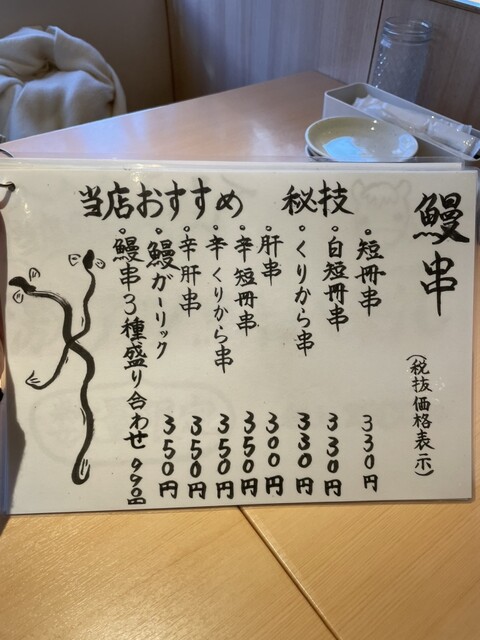 鰻串
(税抜価格表示)
秘技
・短冊串 330円
・白短冊串 330円
・くりから串 330円
・肝串 300円
・辛短冊串 350円
・辛くりから串 350円
・辛肝串 350円
・鰻ガーリック 350円
・鰻串3種盛り合わせ 990円
当店おすすめ